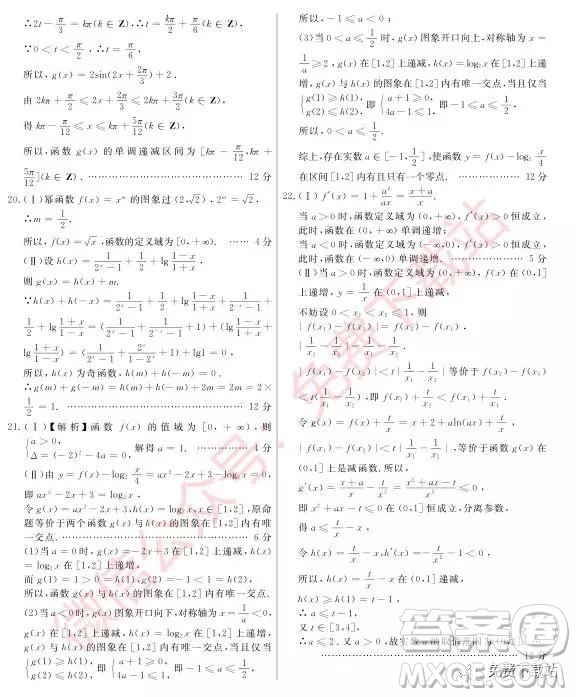 ∴2t-π/3=kπ(k∈Z).∴t=kπ/2+π/6(k∈Z).
∵0<t<π/2,∴t=π/6.
所以,g(x)=2sin(2x+2π/3)+2.
由 2kπ+π/2≤2x+2π/3≤2kπ+3π/2(k∈Z)
得 kπ-π/12≤x≤kπ+5π/12(k∈Z).
所以,函数 g(x)的单调递减区间为[kπ-π/12,kπ+
5π/12](k∈Z). 12 分
20.(Ⅰ)幂函数 f(x)=x^m 的图象过(2,√2),2^m=√2,
∴m=1/2,
所以,f(x)=√x,函数的定义域为[0,+∞). …… 4 分
(Ⅱ)设 h(x)=1/(2^x-1)+1/2+lg(1-x)/(1+x),
则 g(x)=h(x)+m.
∵h(x)+h(-x)=1/(2^x-1)+1/2+lg(1-x)/(1+x)+1/(2^-x-1)+
1/2+lg(1+x)/(1-x)=1/(2^x-1)+1/2+1/(2^-x-1)+1/2+
lg(1-x)/(1+x)+lg(1+x)/(1-x)=0+lg1=0.
所以,h(x)为奇函数,h(m)+h(-m)=0.
∴g(m)+g(-m)=h(m)+h(-m)+2m=2m=2×
1/2=1. 12 分
21.(Ⅰ)【解析】函数 f(x)的值域为[0,+∞),则
{a>0, Δ=(-2)²-4a=0, 解得 a=1. 4 分
(Ⅱ)由 y=f(x)-log₂x/4=ax²-2x+3-log₂x=0,
即 ax²-2x+3=log₂x.
令 g(x)=ax²-2x+3,h(x)=log₂x,x∈[1,2],原命
题等价于两个函数 g(x)与 h(x)的图象在[1,2]内有唯
一交点. 6 分
(1)当 a=0 时,g(x)=-2x+3 在[1,2]上递减,h(x)
=log₂x 在[1,2]上递增,
而 g(1)=1>0=h(1),g(2)=-1<1=h(2),
所以,函数 g(x)与 h(x)的图象在[1,2]内有唯一交点.
(2)当 a<0 时,g(x)图象开口向下,对称轴为 x=1/a<
0,g(x)在[1,2]上递减,h(x)=log₂x 在[1,2]上递增,
g(x)与 h(x)的图象在[1,2]内有唯一交点,当且仅当
{g(1)≥h(1) g(2)≤h(2), 即 {a+1≥0, 4a-1≤1, 即-1≤a≤1/2.
所以,-1≤a<0;
(3)当 0<a≤1/2时,g(x)图象开口向上,对称轴为 x=
1/a≥2,g(x)在[1,2]上递减,h(x)=log₂x 在[1,2]上递
增,g(x)与 h(x)的图象在[1,2]内有唯一交点,当且仅当
{g(1)≥h(1) g(2)≤h(2), 即 {a+1≥0, 4a-1≤1, 即-1≤a≤1/2.
所以,0<a≤1/2.
综上,存在实数 a∈[-1,1/2],使函数 y=f(x)-log₂x/4
在区间[1,2]内有且只有一个零点. 12 分
22.(Ⅰ)f′(x)=1+a/x=(x+a)/x.
当 a>0 时,函数定义域为(0,+∞),f′(x)>0 恒成立,
此时,函数在(0,+∞)单调递增;
(Ⅱ)当 a>0 时,函数定义域为(0,+∞),f(x)在(0,1]
上递增,y=1/x在(0,1]上递减,
不妨设 0<x₁<x₂≤1,则
|f(x₁)-f(x₂)|=f(x₂)-f(x₁),
|1/x₁-1/x₂|=1/x₁-1/x₂
∴|f(x₁)-f(x₂)|<t|1/x₁-1/x₂|等价于 f(x₂)-f(x₁)
令 g(x)=f(x)+t/x=x+2+aln(ax)+t/x,
(0,1]上是减函数,所以,
g′(x)=(x+a)/x-t/x²=(x²+ax-t)/x²≤0,
即 x²+ax-t≤0 在(0,1]恒成立,分离参数,
得 a≤t/x-x.
令 h(x)=t/x-x,h′(x)=-t/x²-1<0,
所以,h(x)=t/x-x 在(0,1]递减.
h(x)≥h(1)=t-1.
∴a≤t-1.
微信公众号:免费下载站
答案圈
免费下载站